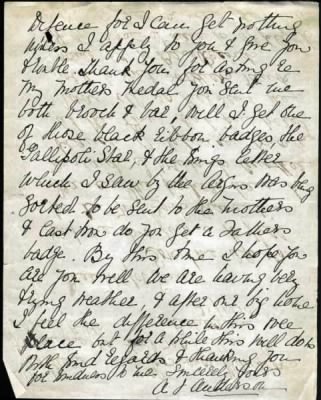 Defence for I can get nothing
unless I apply to you & give you
trouble. Thank you for asking re
my mothers medal you sent me
both brooch & bar, will I get one
of those black ribbon badges, the
Gallipoli Star, & the Kings letter
which I saw by the Argus was being
sorted to be sent to the mothers
& last how do you get a Fathers
badge. By this time I hope you
are you well we are having very
trying weather, & after our big home
I feel the difference in this wee
place but for a while this will do us
With fond Regards & thanking you
for kindness to me Sincerely yours
A J Anderson